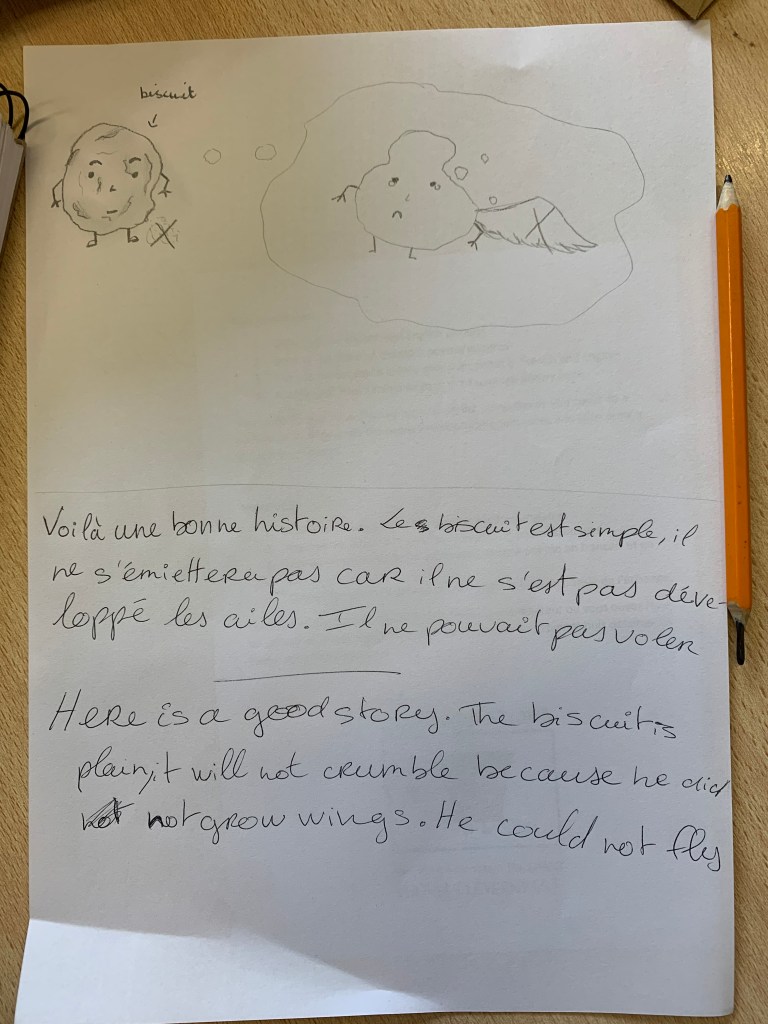 biscuit
Voilà une bonne histoire. Le biscuit est simple, il
ne s'émiettera pas car il ne s'est pas déve-
loppé les ailes. Il ne pouvait pas voler
Here is a good story. The biscuit is
plain, it will not crumble because he did
not grow wings. He could not fly